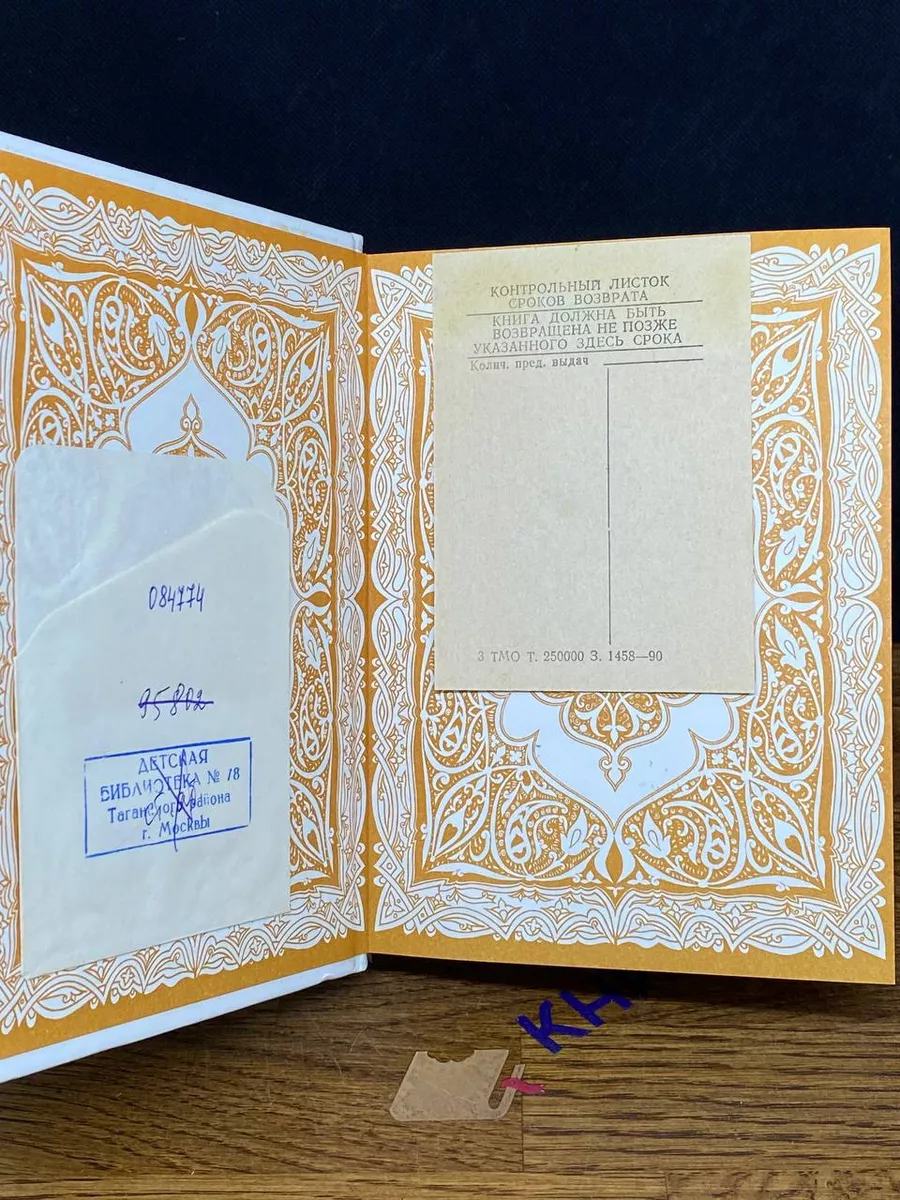 084774
95802
ДЕТСКАЯ
БИБЛИОТЕКА № 18
Таганского района
г. Москвы
КОНТРОЛЬНЫЙ ЛИСТОК
СРОКОВ ВОЗВРАТА
КНИГА ДОЛЖНА БЫТЬ
ВОЗВРАЩЕНА НЕ ПОЗЖЕ
УКАЗАННОГО ЗДЕСЬ СРОКА
Колич. пред. выдач
3 ТМО Т. 250000 З. 1458—90
КН